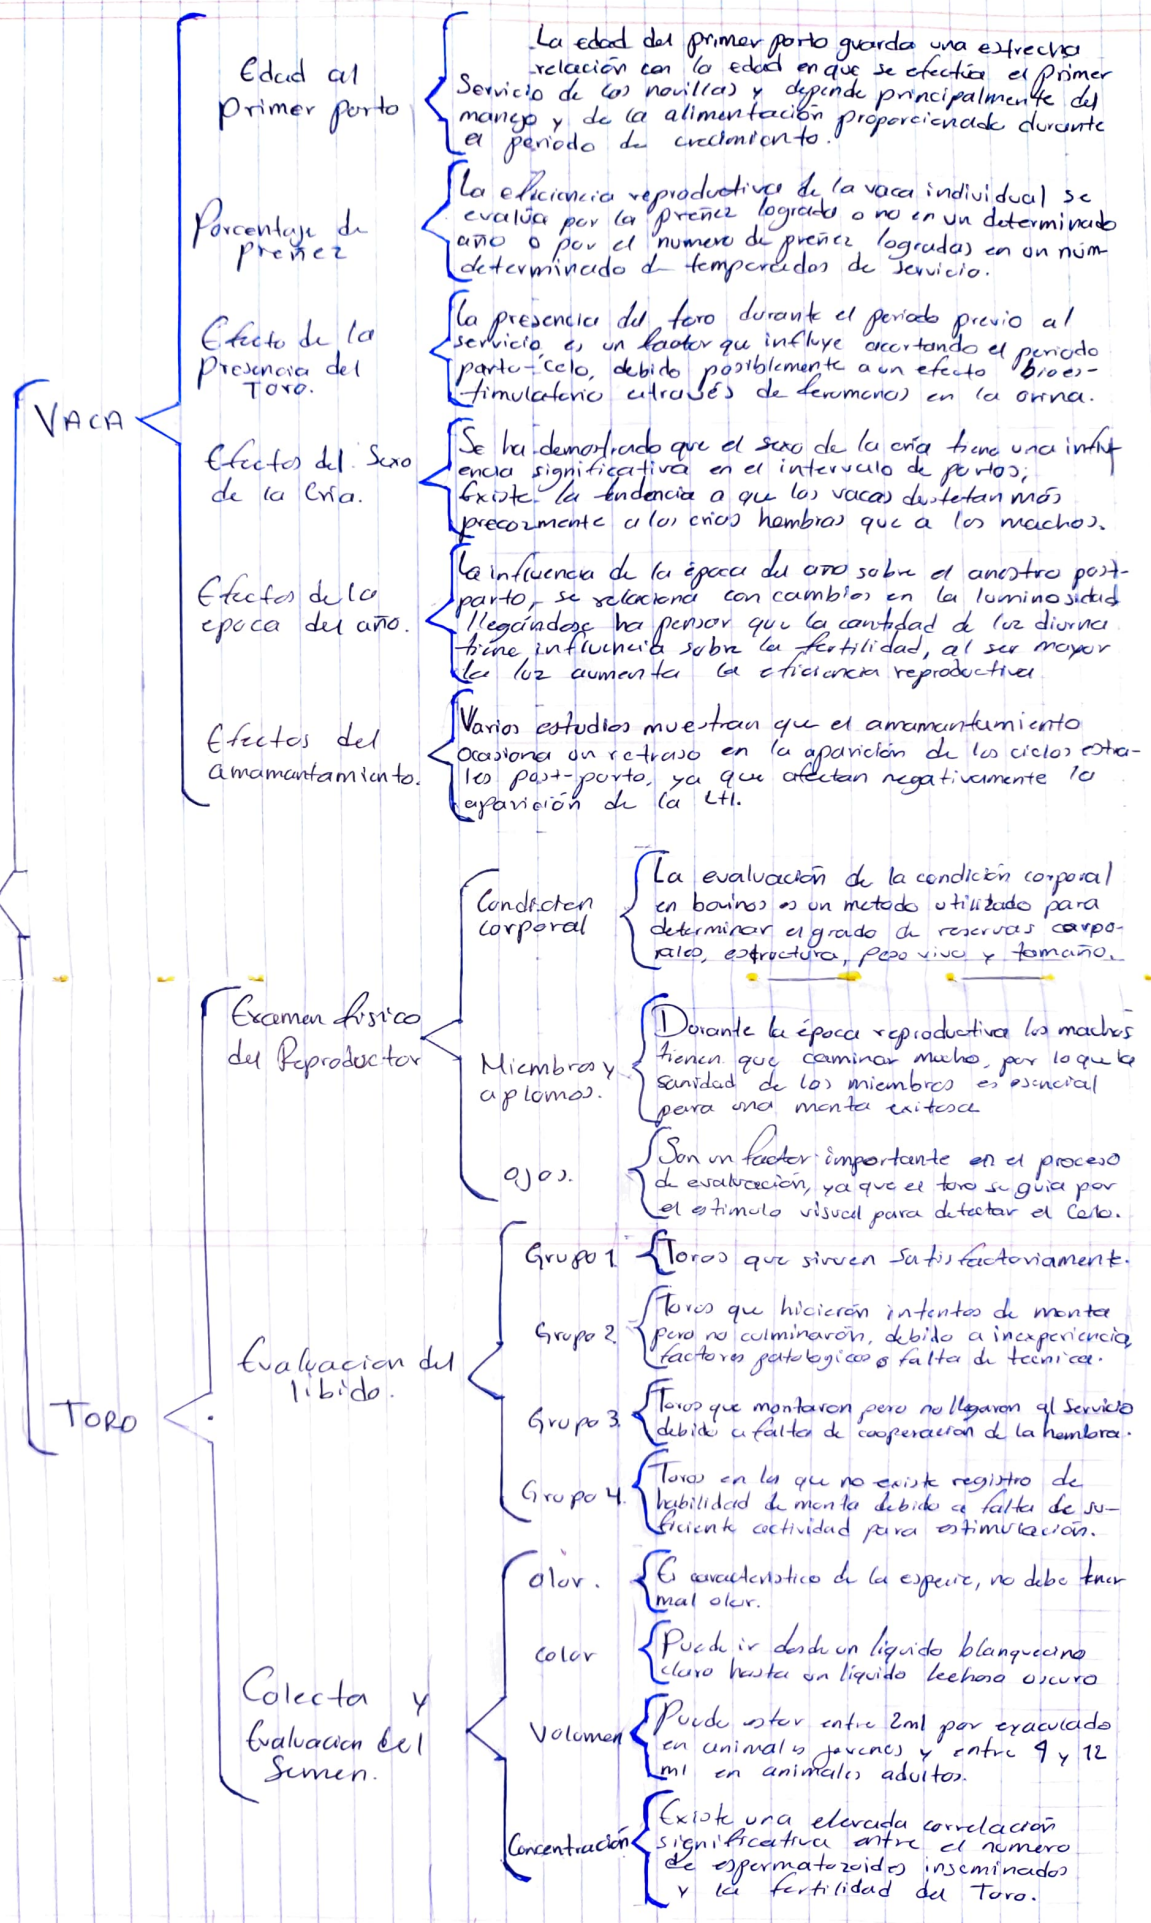 VACA
Edad al
Primer parto
La edad del primer parto guarda una estrecha
relación con la edad en que se efectúa el primer
Servicio de las novillas y depende principalmente del
manejo y de la alimentación proporcionada durante
el periodo de crecimiento.
Porcentaje de
Preñez
La eficiencia reproductiva de la vaca individual se
evalúa por la preñez lograda o no en un determinado
año o por el numero de preñez logradas en un núm
determinado d temporadas de servicio.
Efecto de la
Presencia del
Toro.
La presencia del toro durante el periodo previo al
servicio, es un factor que influye acortando el periodo
parto-celo, debido posiblemente a un efecto bioes-
timulatorio através de feromonas en la orina.
Efectos del Sexo
de la Cría.
Se ha demostrado que el sexo de la cría tiene una influ
encia significativa en el intervalo de partos;
Existe la tendencia a que las vacas destetan más
precozmente a las crias hembras que a los machos.
Efectos de la
época del año.
La influencia de la época del año sobre el anestro post-
parto, se relaciona con cambios en la luminosidad
llegándose ha pensar que la cantidad de luz diurna
tiene influencia sobre la fertilidad, al ser mayor
la luz aumenta la eficiencia reproductiva
Efectos del
amamantamiento.
Varios estudios muestran que el amamantamiento
Ocasiona un retraso en la aparición de los ciclos estra-
les post-parto, ya que afectan negativamente la
aparición de la LH.
TORO
Examen físico
del Reproductor
Condicion
corporal
La evaluación de la condición corporal
en bovinos es un metodo utilizado para
determinar el grado de reservas corpo-
rales, estructura, peso vivo y tamaño.
Miembros y
aplomos.
Durante la época reproductiva los machos
tienen que caminar mucho, por lo que la
sanidad de los miembros es esencial
para una monta exitosa
Ojos.
Son un factor importante en el proceso
de evaluación, ya que el toro se guia por
el estimulo visual para detectar el Celo.
Evaluacion del
libido.
Grupo 1
Toros que sirven satisfactoriamente.
Grupo 2
Toros que hicierón intentos de monta
pero no culminarón, debido a inexperiencia,
factores patologicos o falta de tecnica.
Grupo 3
Toros que montaron pero no llegaron al Servicio
debido a falta de cooperación de la hembra.
Grupo 4.
Toros en los que no existe registro de
habilidad de monta debido a falta de su-
ficiente actividad para estimulación.
Colecta y
Evaluacion del
Semen.
Olor.
Es caracteristico de la especie, no debe tener
mal olor.
Color
Puede ir desde un liquido blanquecino
claro hasta un líquido lechoso oscuro
Volumen
Puede estar entre 2ml por eyaculado
en animales jovenes y entre 4 y 12
ml en animales adultos.
Concentración
Existe una elevada correlación
significativa entre el numero
de espermatozoides inseminados
y la fertilidad del Toro.